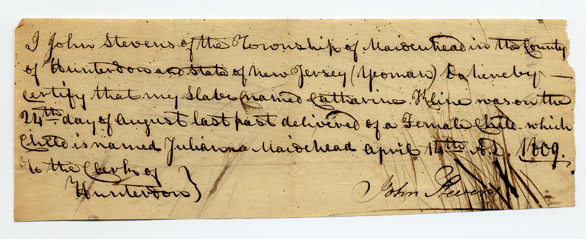 I John Stevens of the Township of Maidenhead in the County
of Hunterdon and State of New Jersey (Yeoman) Do hereby
certify that my Slave named Catharine Kline was on the
24th day of August last past delivered of a Female Child which
Child is named Julianna Maidehead April 14th A.D. 1809.
To the Clerk of
Hunterdon}
John Stevens